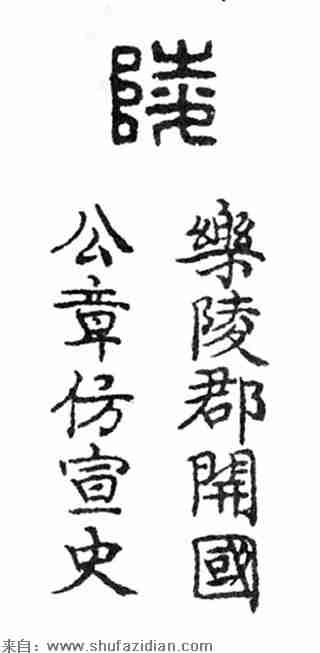 陵
樂陵郡開國
公章仿宣史
来自：www.shufazidian.com